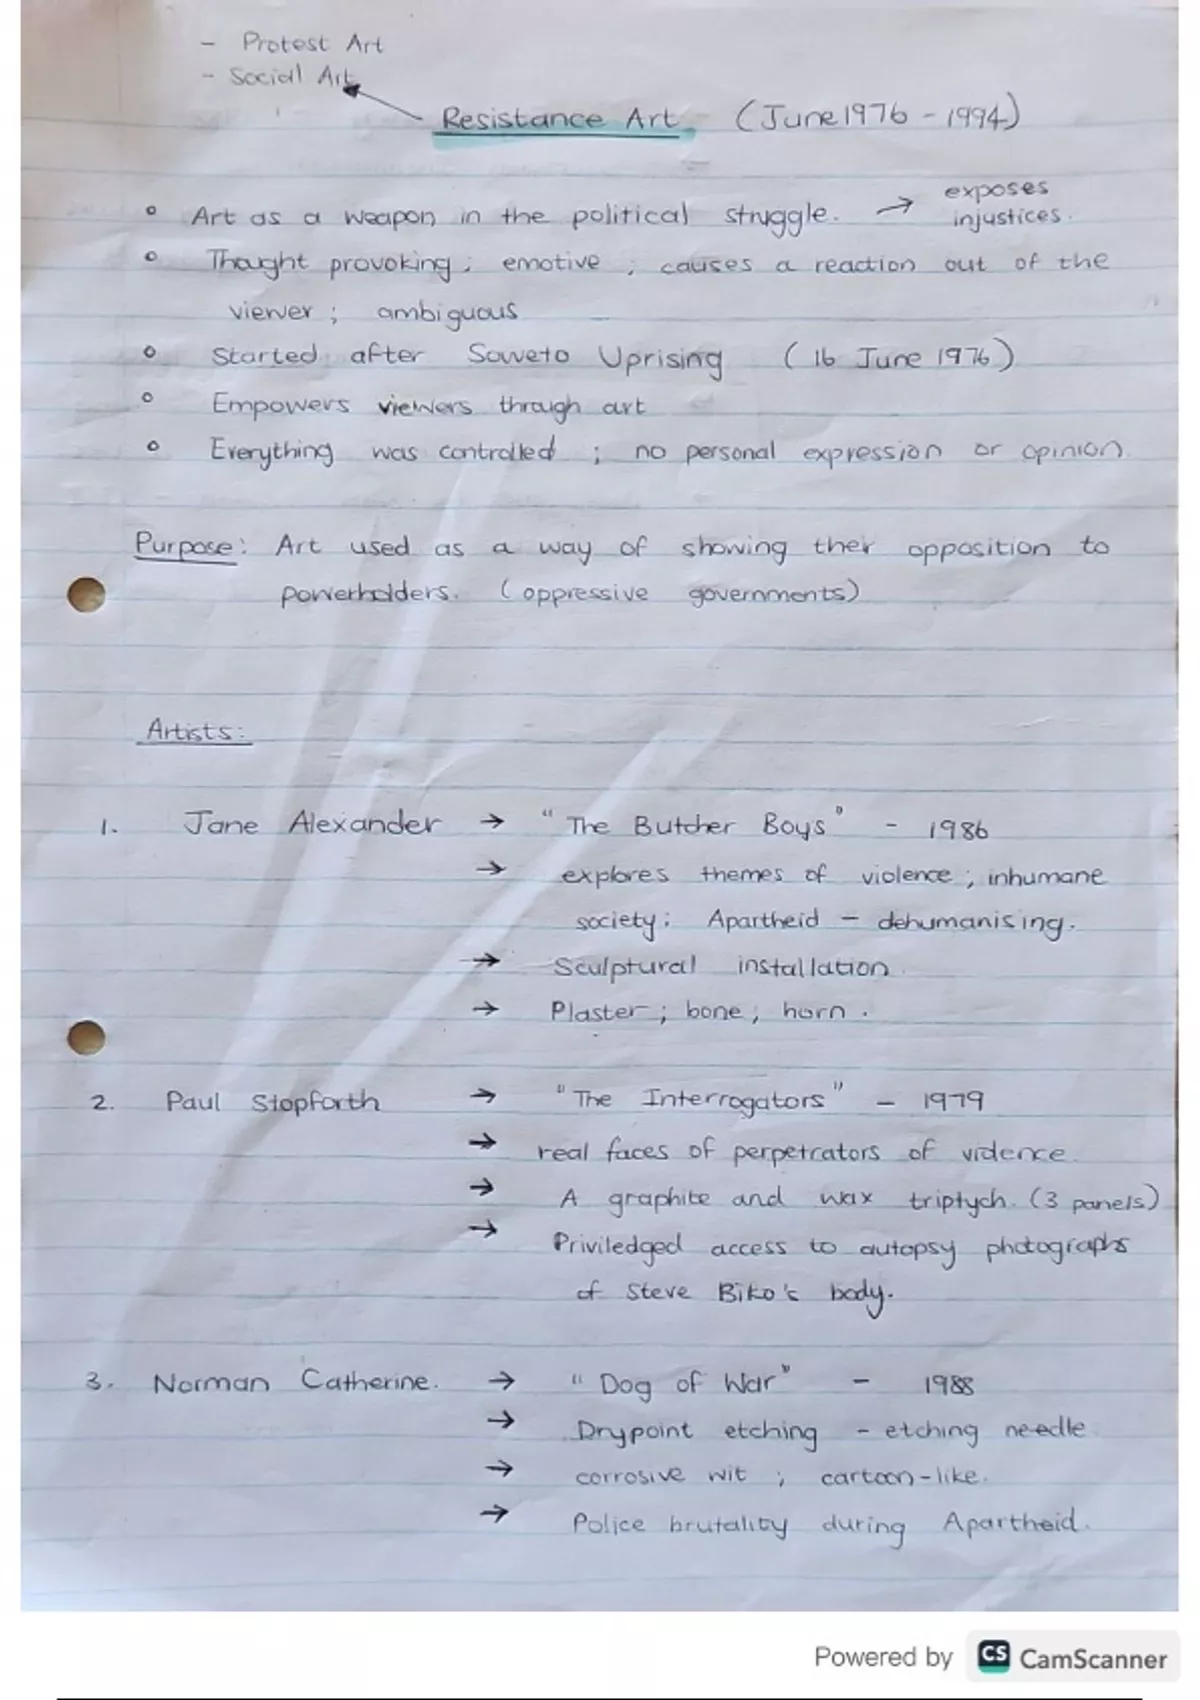 - Protest Art
- Social Art
Resistance Art (June 1976 - 1994)
° Art as a weapon in the political struggle. → exposes injustices.
° Thought provoking ; emotive ; causes a reaction out of the
viewer ; ambiguous
° Started after Soweto Uprising (16 June 1976)
° Empowers viewers through art
° Everything was controlled ; no personal expression or opinion.
Purpose: Art used as a way of showing their opposition to
powerholders. (oppressive governments)
Artists:
1. Jane Alexander → "The Butcher Boys" - 1986
→ explores themes of violence ; inhumane
society; Apartheid - dehumanising.
→ Sculptural installation.
→ Plaster ; bone ; horn.
2. Paul Stopforth → "The Interrogators" - 1979
→ real faces of perpetrators of violence.
→ A graphite and wax triptych. (3 panels)
→ Priviledged access to autopsy photographs
of Steve Biko's body.
3. Norman Catherine. → "Dog of War" - 1988
→ Drypoint etching - etching needle.
→ corrosive wit ; cartoon-like.
→ Police brutality during Apartheid.
Powered by CS CamScanner